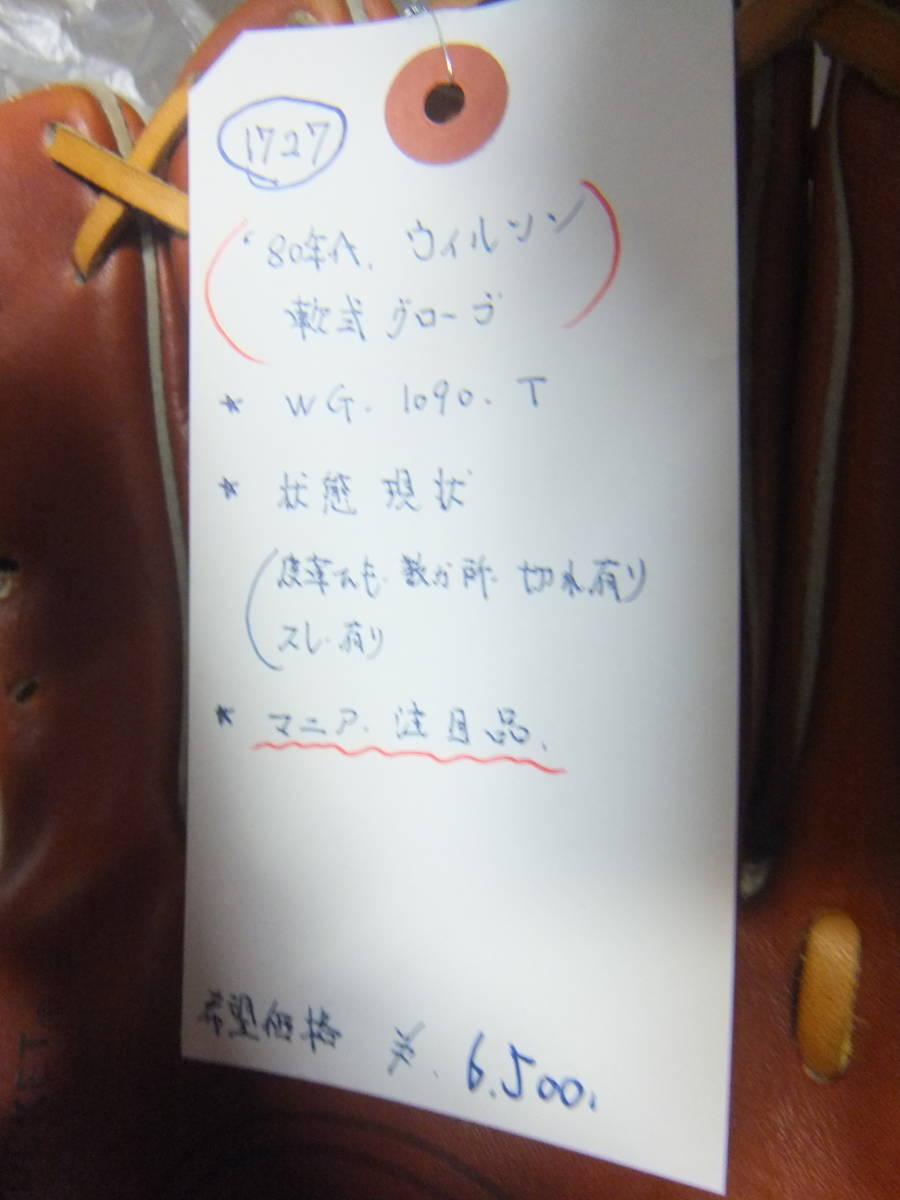 1727
'80年代. ウィルソン
軟式グローブ
* WG. 1090. T
* 状態 現状
皮革ひも. 数か所. 切れ有り
スレ. 有り
* マニア. 注目品.
希望価格 ¥. 6.500.